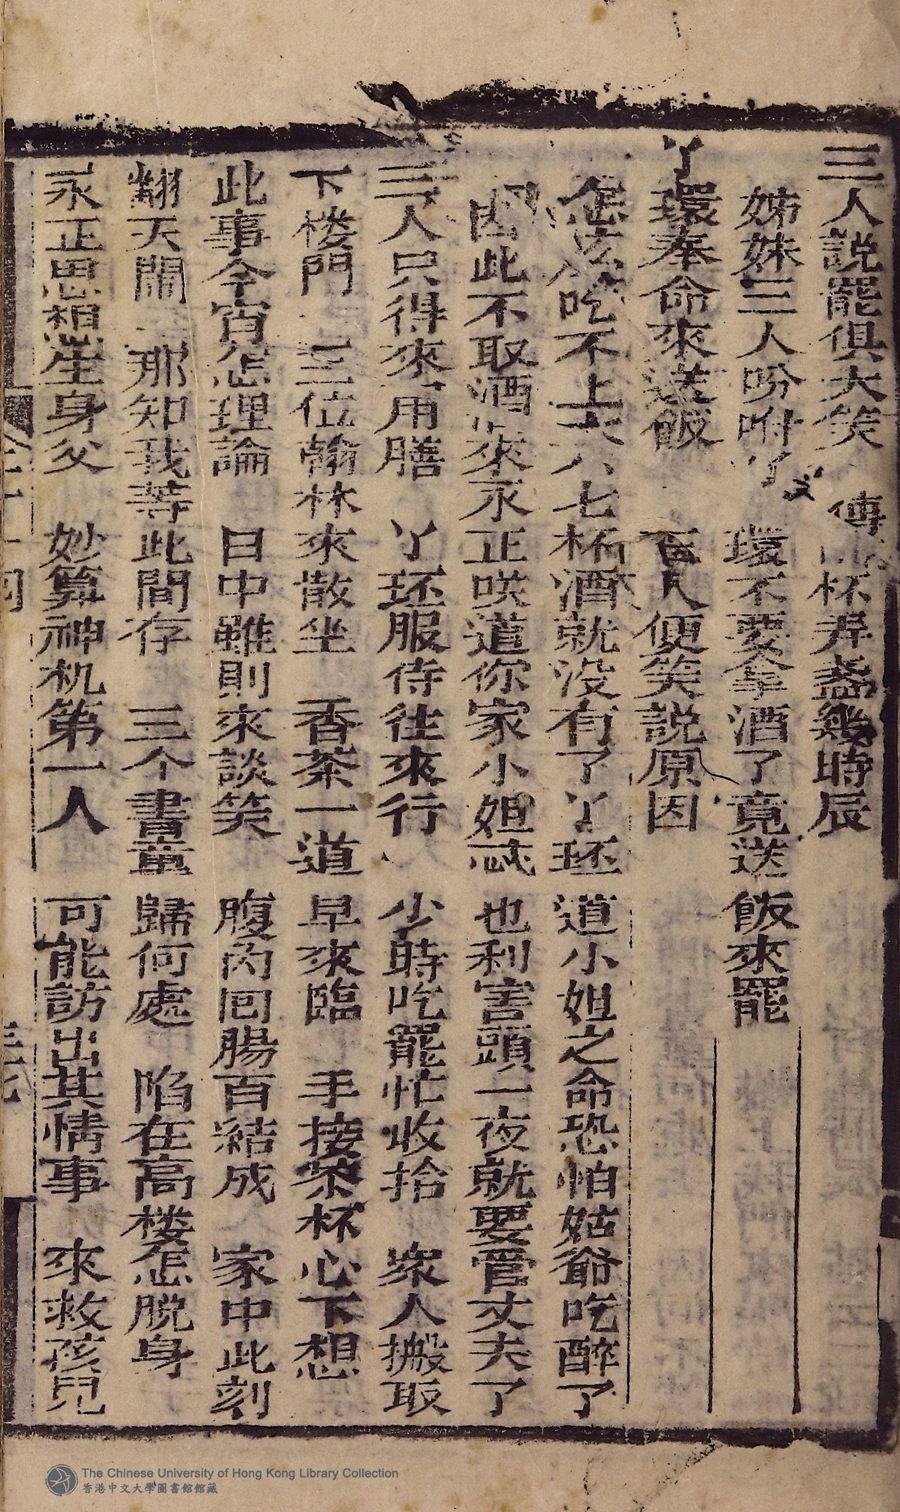 三人説罷俱大笑 傳杯弄盞幾時辰
姊妹三人吩咐了 環不要拿酒了竟送飯來罷
丫環奉命來送飯 三人便笑説原因
怎広吃不上六八七杯酒就没有了丫环道小姐之命恐怕姑爺吃醉了
因此不取酒來永正咲道你家小姐忒也利害頭一夜就要管丈夫了
三人只得來用膳 丫环服侍往來行 少時吃罷忙收拾 衆人搬取
下楼門 三位翰林來散坐 香茶一道早來臨 手接茶杯心下想
此事今宵怎理論 日中雖則來談笑 腹内囘腸百結成 家中此刻
翻天鬧 那知我等此間存 三个書童歸何處 陷在高楼怎脱身
永正思想生身父 妙算神机第一人 可能訪出其情事 來救孩兒
The Chinese University of Hong Kong Library Collection
香港中文大學圖書館館藏